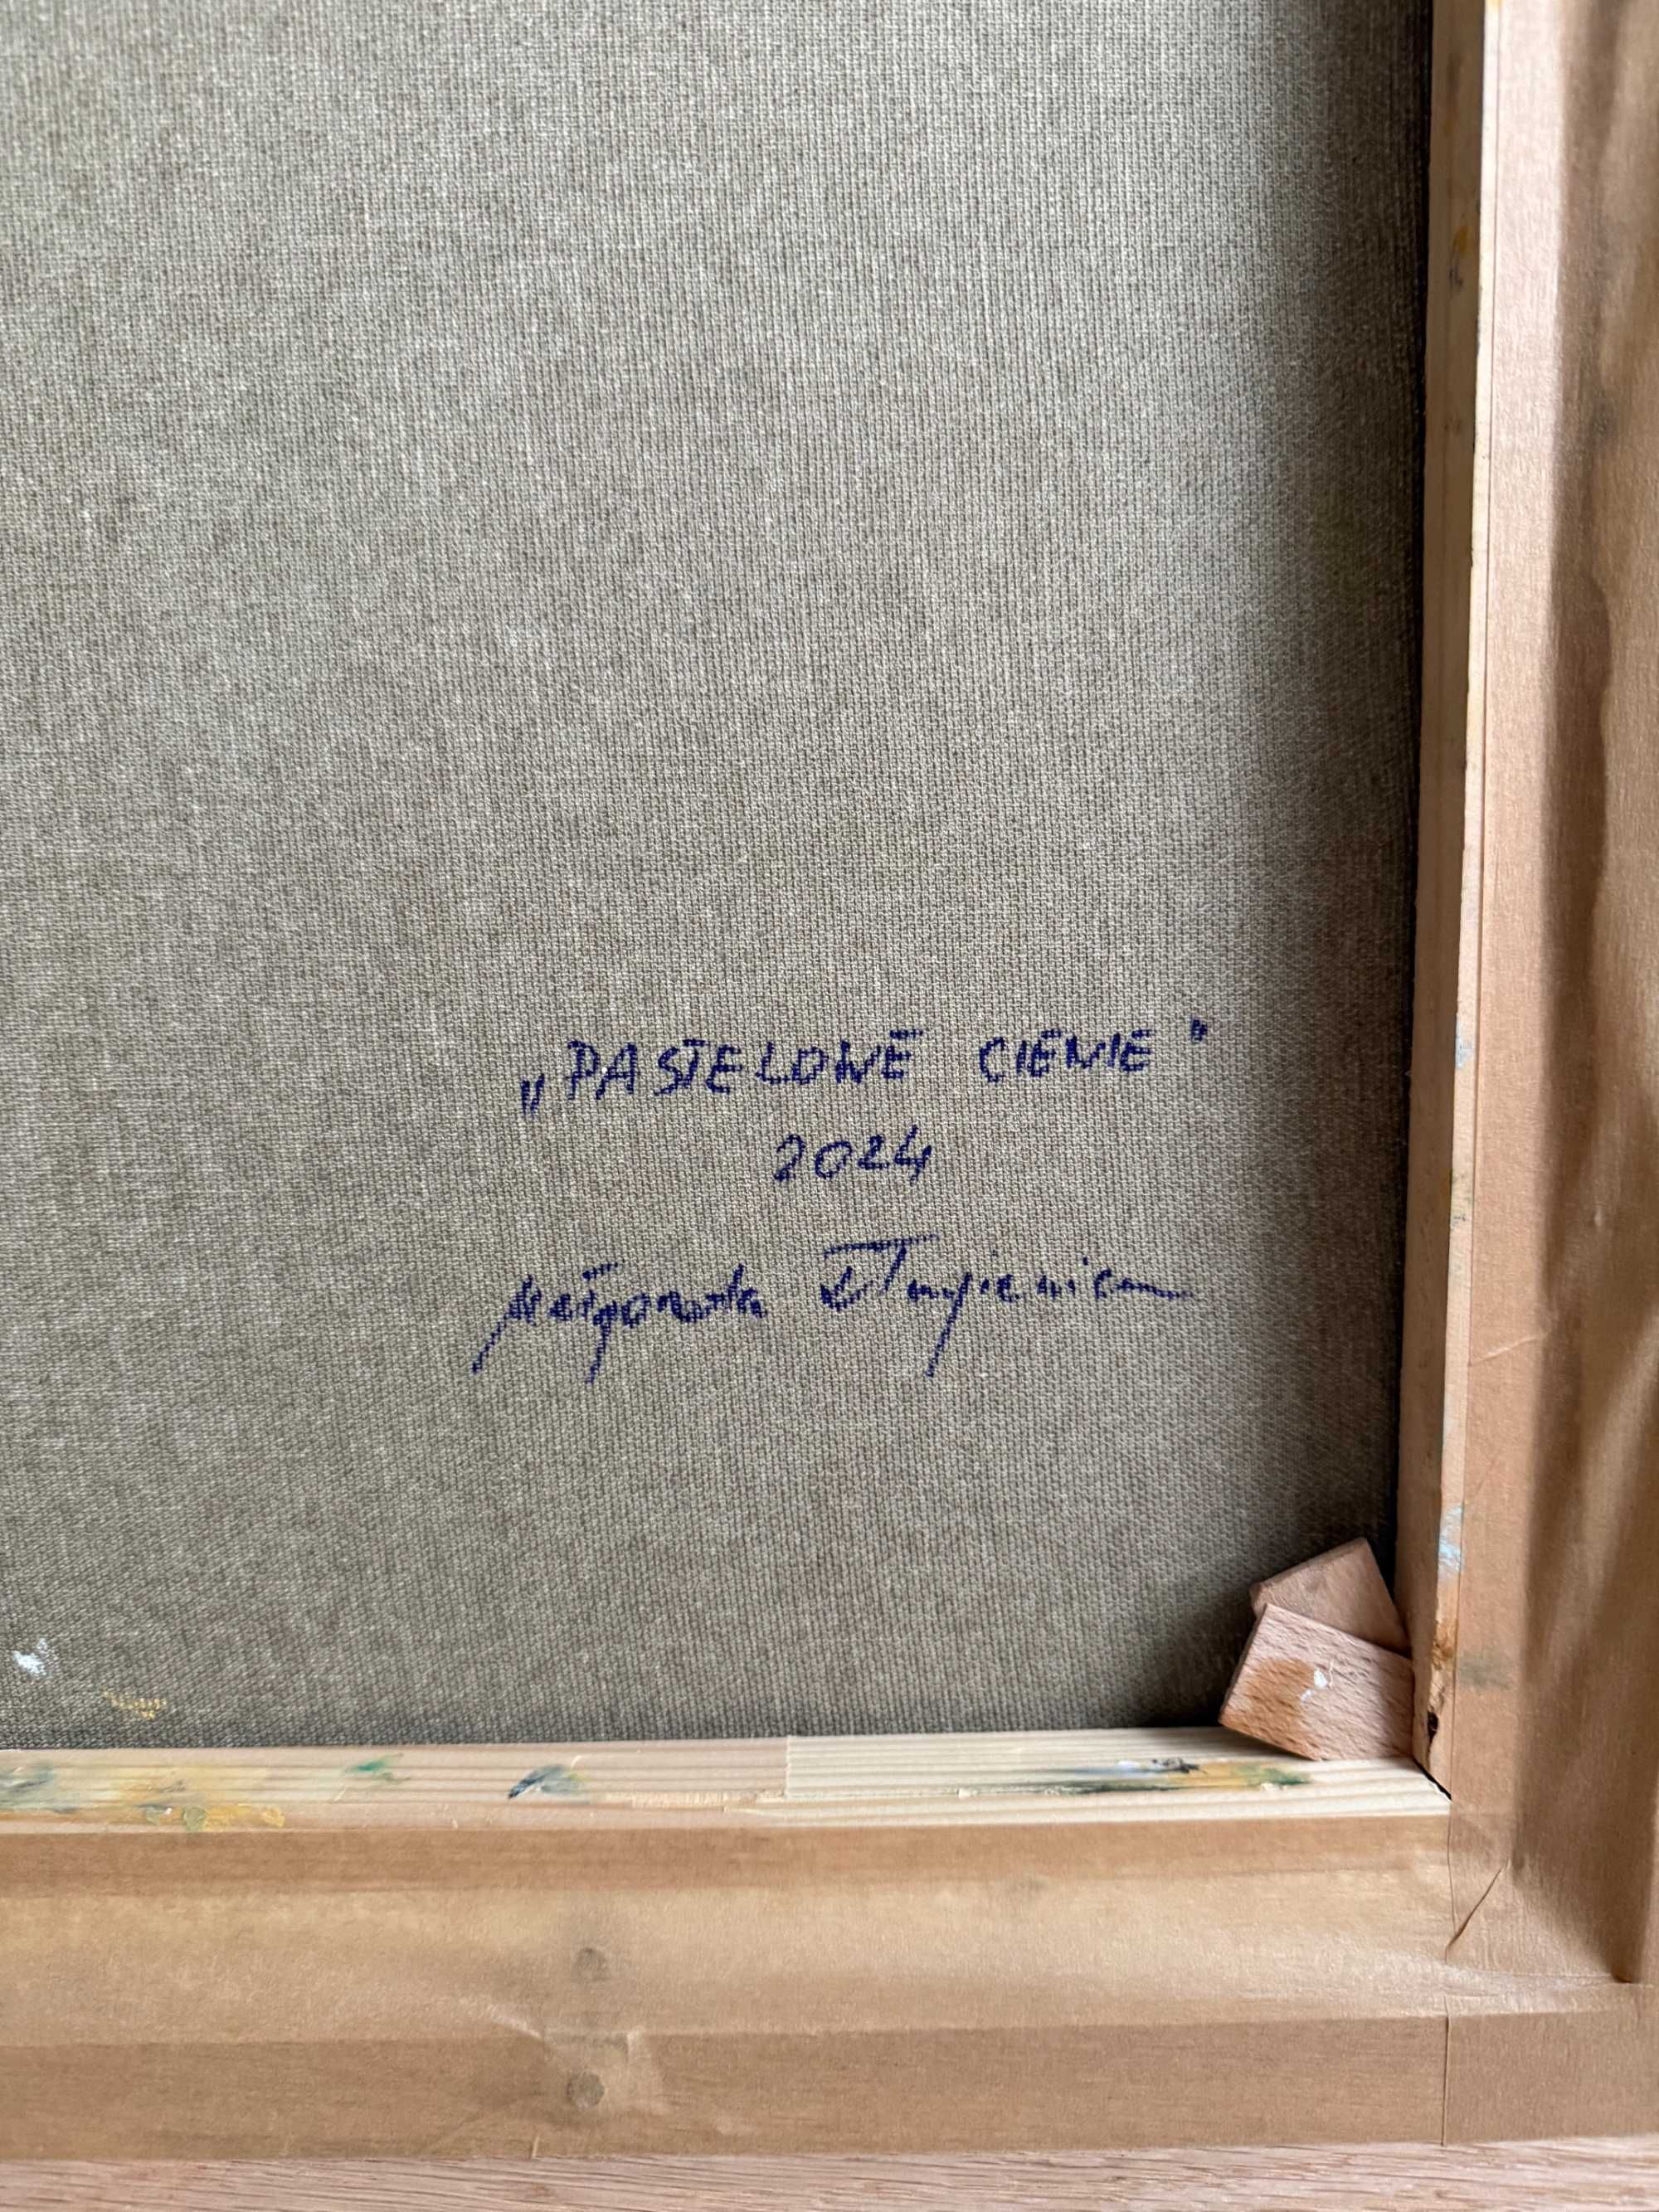 „PASTELOWE CIENIE"
2024
Małgorzata